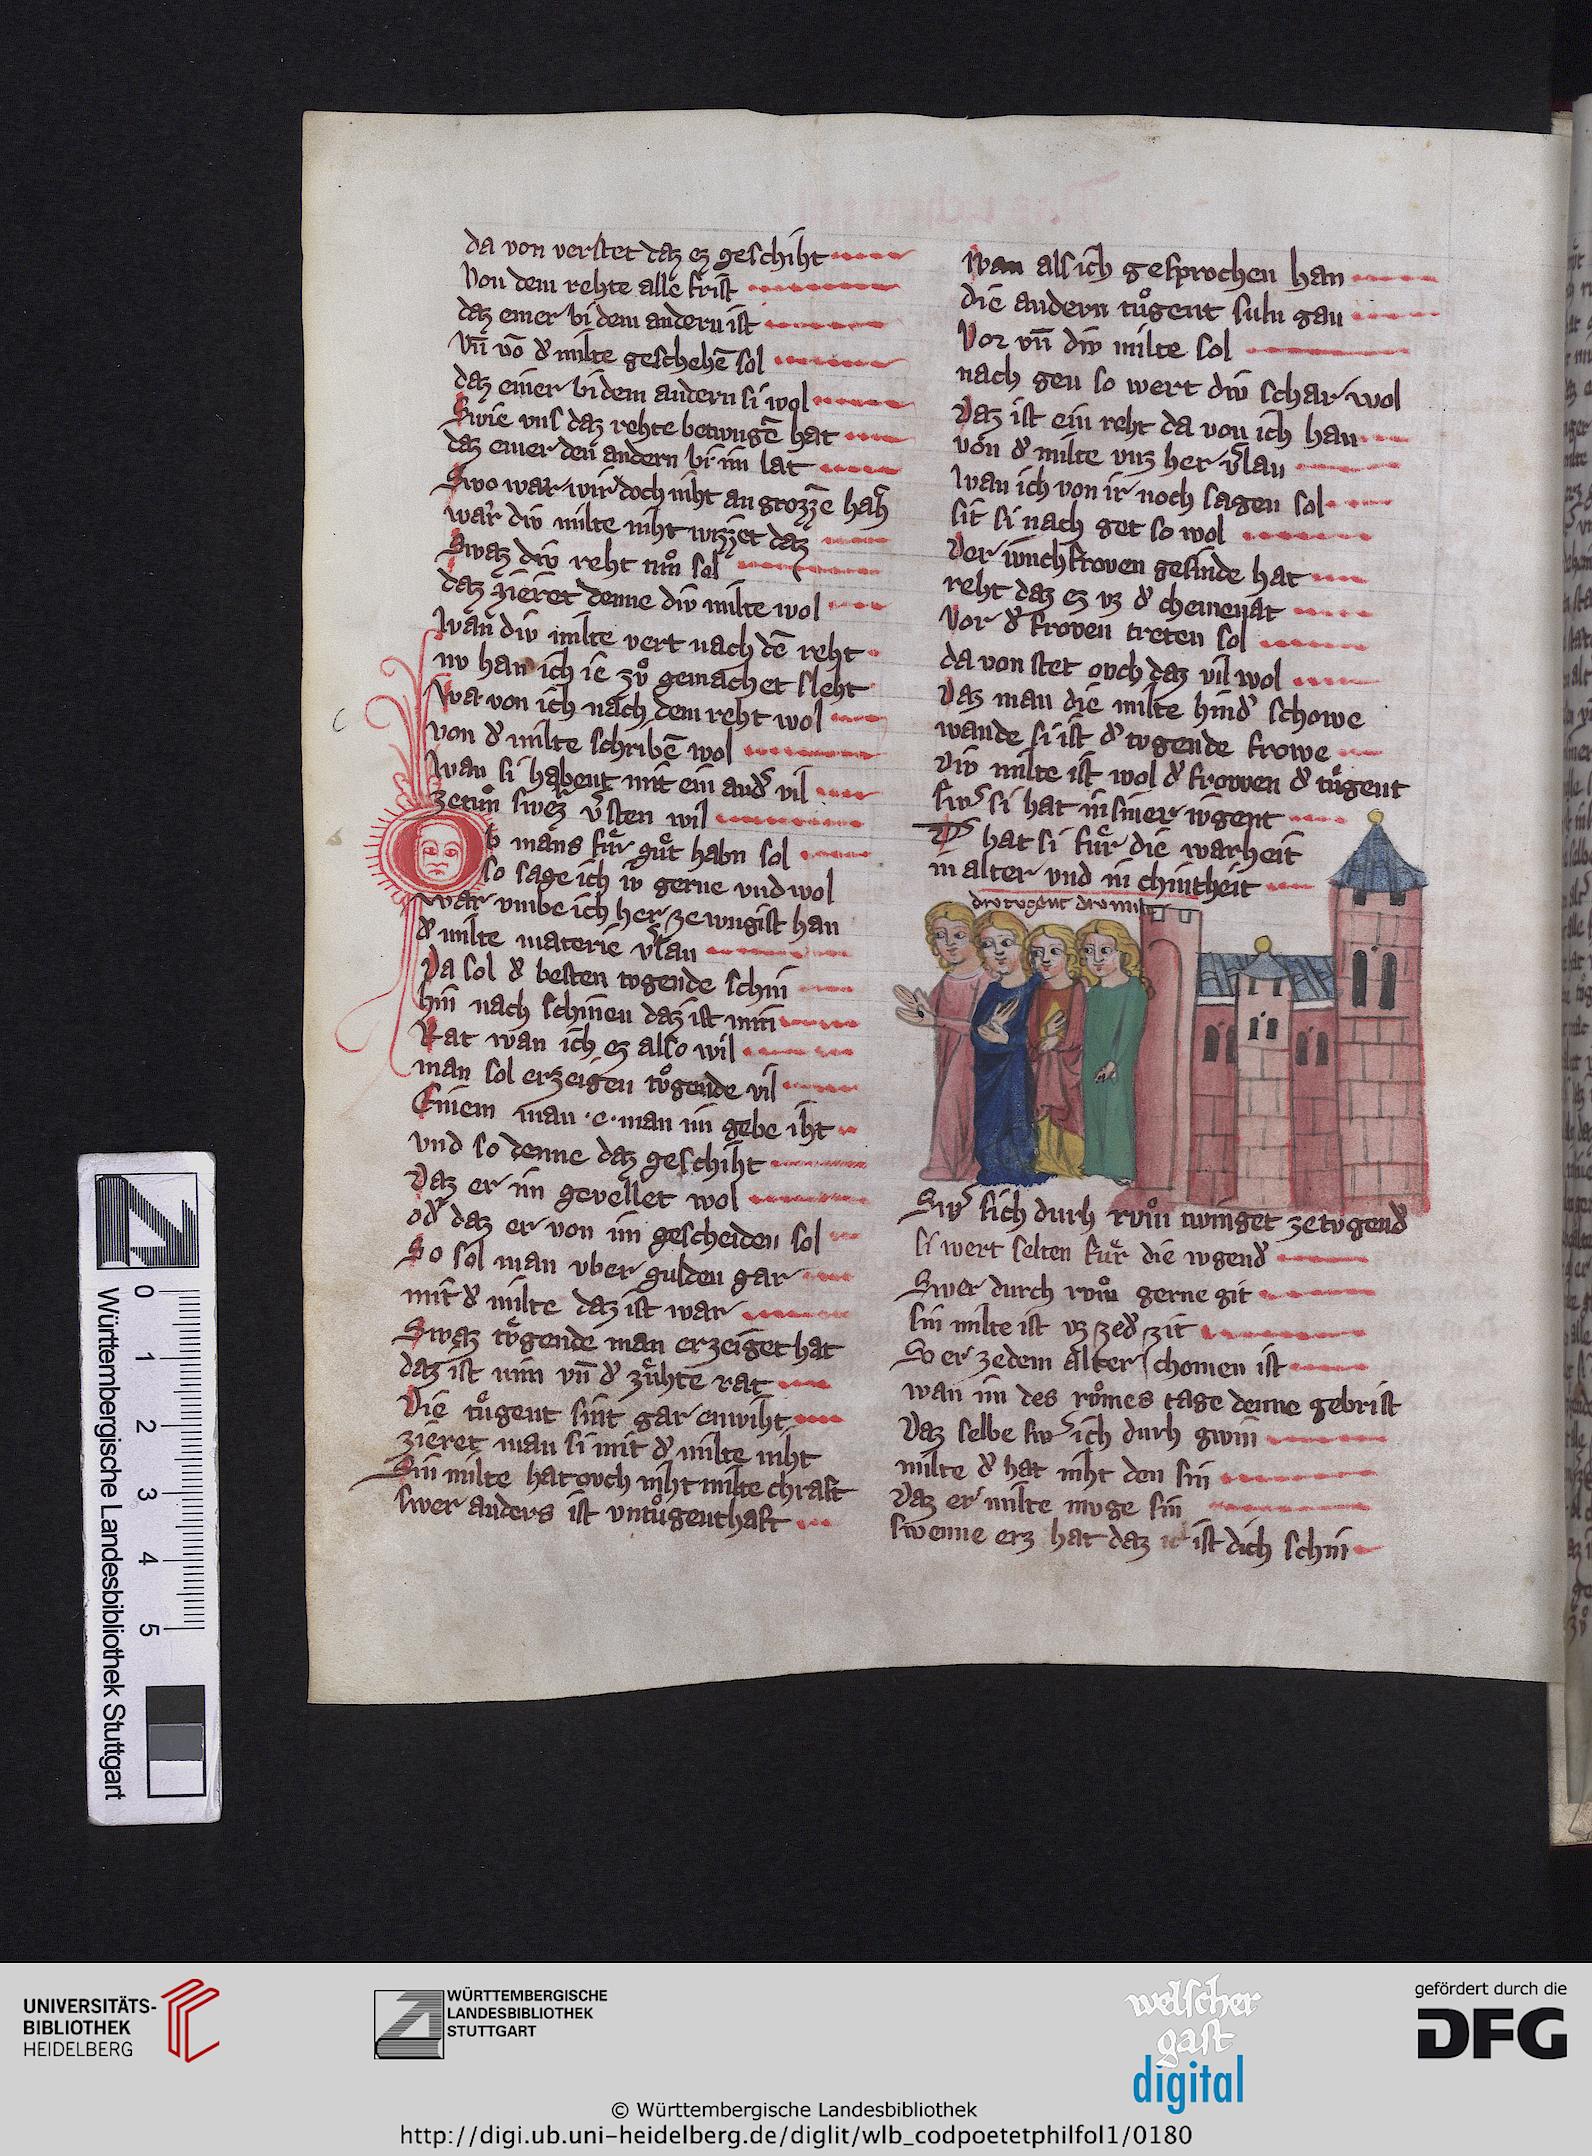 da von verstet daz ez geschiht
Von dem rehte alle frist
daz einer bi dem andern ist
Vn̄ vō d᾽ milte geschehē sol
daz einer bi dem andern si wol
Swie vns daz rehte betwngē hat
daz einer den andern bi im lat
Swo war wir doch niht an grozzē haz
war div milte niht wizzet daz
Swaz div reht mͦn sol
daz zieret denne div milte wol
Wan div milte vert nach dē reht
nv han ich ie zvͦ gemachet sleht
Wa von ich nach dem reht wol
von d᾽ milte schribē wol
Wan si habent mit ein and᾽ vil
zetuͦn swez v᾽sten wil
Ob mans fuͤr guͦt habn sol
so sage ich iv gerne vnd wol
War vmbe ich her ze wngist han
d᾽ milte materie v᾽lan
Da sol d᾽ besten tvgende schin
hin nach schinen daz ist min
Rat wan ich ez also wil
man sol erzeigen tvgende vil
Einem man ·e· man im gebe iht
vnd so denne daz geschiht
Daz er im gevellet wol
od᾽ daz er von im gescheiden sol
So sol man vber gulden gar
mit d᾽ milte daz ist war
Swaz tvgende man erzeiget hat
daz ist min vn̄ d᾽ zuͤhte rat
Die tuͦgent sint gar enwiht
zieret man si mit d᾽ milte niht
Sin milte hat ovch niht milte chraft
swer anders ist vntuͦgenthaft
Wan als ich gesprochen han
die andern tuͦgent suln gan
Vor vn̄ div milte sol
nach gen so wert div schar wol
Daz ist ein reht da von ich han
von d᾽ milte vnz her v᾽lan
Wan ich von ir noch sagen sol
sit si nach get so wol
Der ivnchfroven gesinde hat
reht daz ez vz d᾽ chemenat
Vor d᾽ froven treten sol
da von stet ovch daz vil wol
Daz man die milte hind᾽ schowe
wande si ist d᾽ tvgende frowe
Div milte ist wol d᾽ frowen d᾽ tuͦgent
sw᾽ si hat in siner ivgent
D᾽ hat si fuͤr die warheit
in alter vnd in chintheit
div tvgent div milt
Sw᾽ sich durh rvͦm twinget ze tvgend᾽
si wert selten fuͤr die ivgend᾽
Swer durch rvͦm gerne git
sin milte ist vz zed᾽ zit
So er zedem alter chomen ist
wan im des rvͦmes tage denne gebrist
Daz selbe sw᾽ ich durh gwin
milte d᾽ hat niht den sin
Daz er milte mvge sin
swenne erz hat daz ist dich schin
Württembergische Landesbibliothek Stuttgart
0
1
2
3
4
5
UNIVERSITÄTS-
BIBLIOTHEK
HEIDELBERG
WÜRTTEMBERGISCHE
LANDESBIBLIOTHEK
STUTTGART
welscher
gast
digital
gefördert durch die
DFG
© Württembergische Landesbibliothek
http://digi.ub.uni-heidelberg.de/diglit/wlb_codpoetetphilfol1/0180